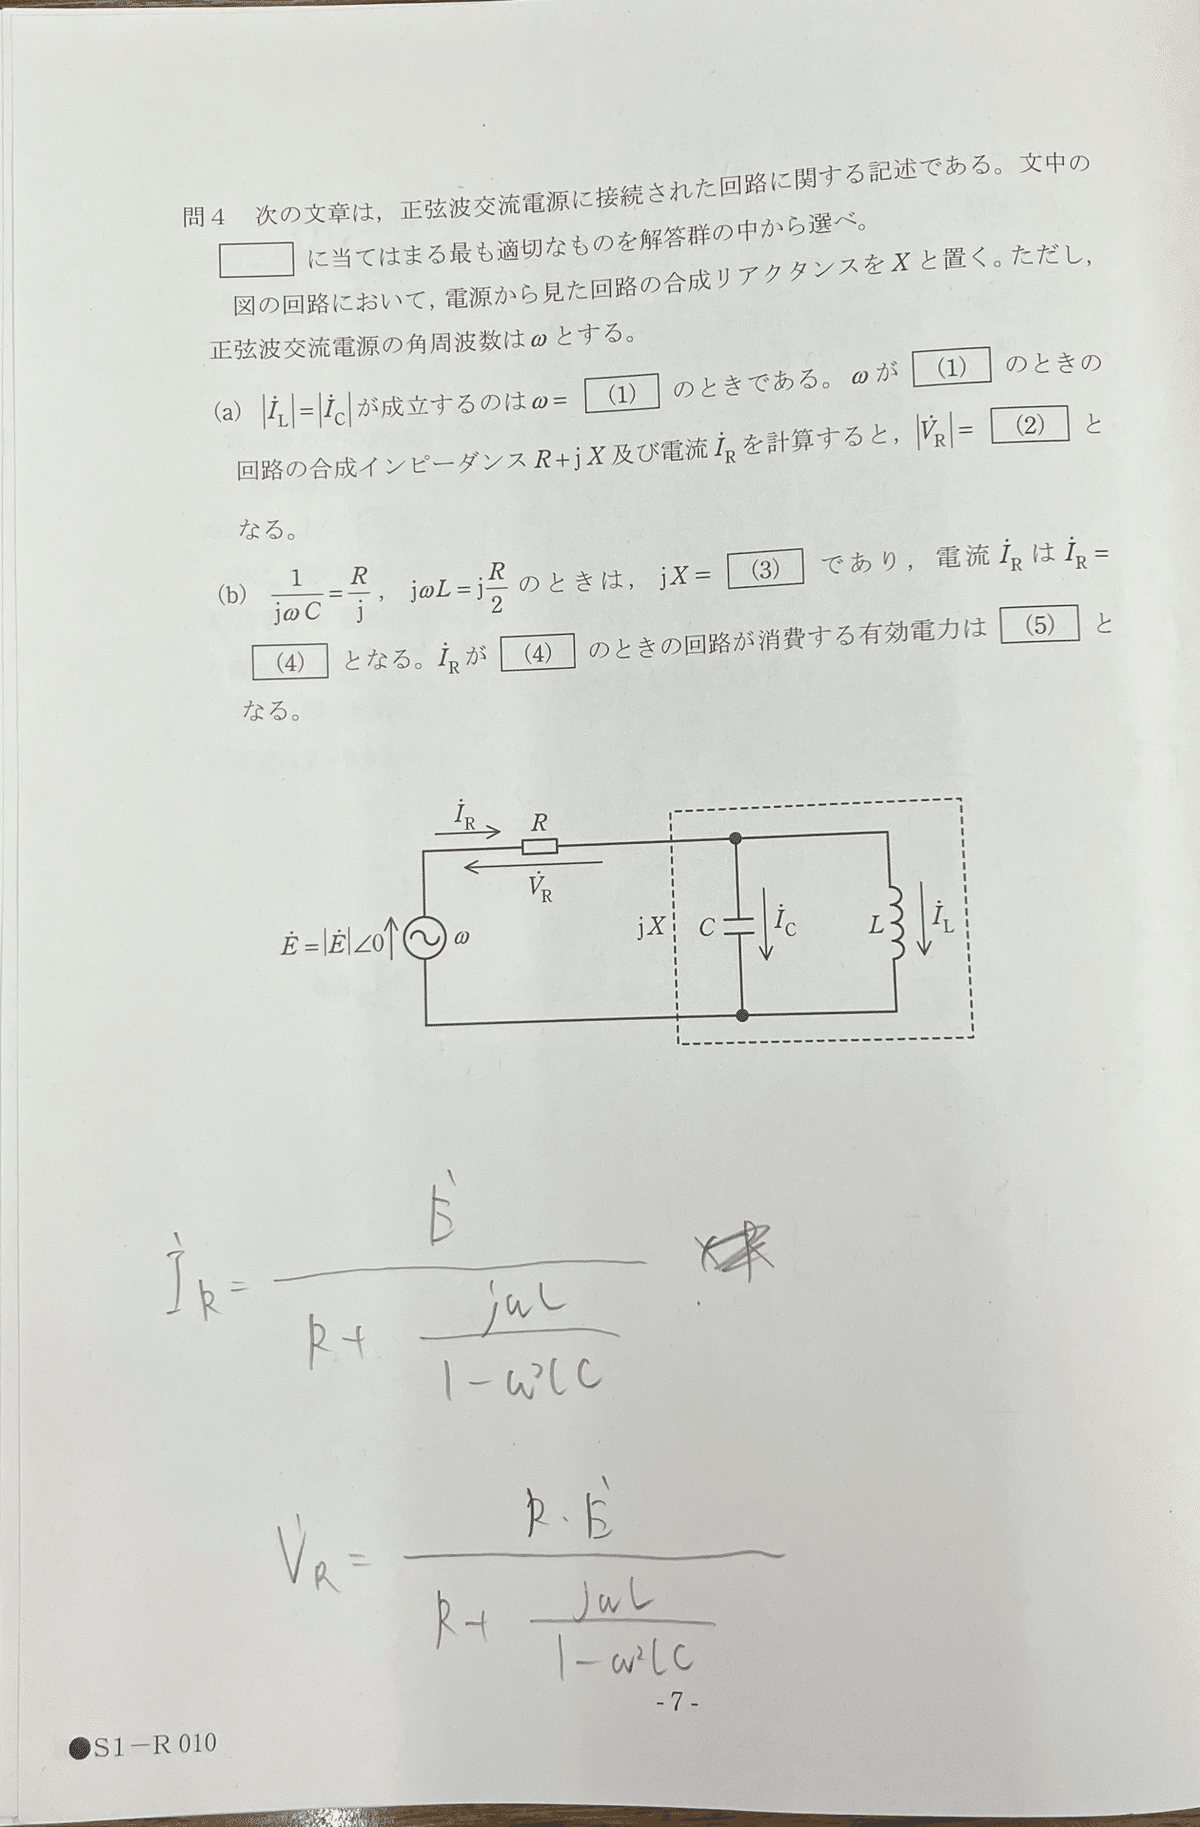 問4 次の文章は，正弦波交流電源に接続された回路に関する記述である。文中の
に当てはまる最も適切なものを解答群の中から選べ。
図の回路において，電源から見た回路の合成リアクタンスをXと置く。ただし，
正弦波交流電源の角周波数はωとする。
(a) |İ_L|=|İ_C|が成立するのはω= (1) のときである。ωが (1) のときの
回路の合成インピーダンスR+jX及び電流İ_Rを計算すると，|V̇_R|= (2) と
なる。
(b) 1/(jωC)=R/j，jωL=jR/2のときは，jX= (3) であり，電流İ_Rはİ_R=
(4) となる。İ_Rが (4) のときの回路が消費する有効電力は (5) と
なる。
İ_R R
V̇_R
Ė=|Ė|∠0 ω jX C İ_C L İ_L
İ_R = Ė / (R + jωL/(1-ω²LC))
V̇_R = R・Ė / (R + jωL/(1-ω²LC))
- 7 -
●S1-R 010